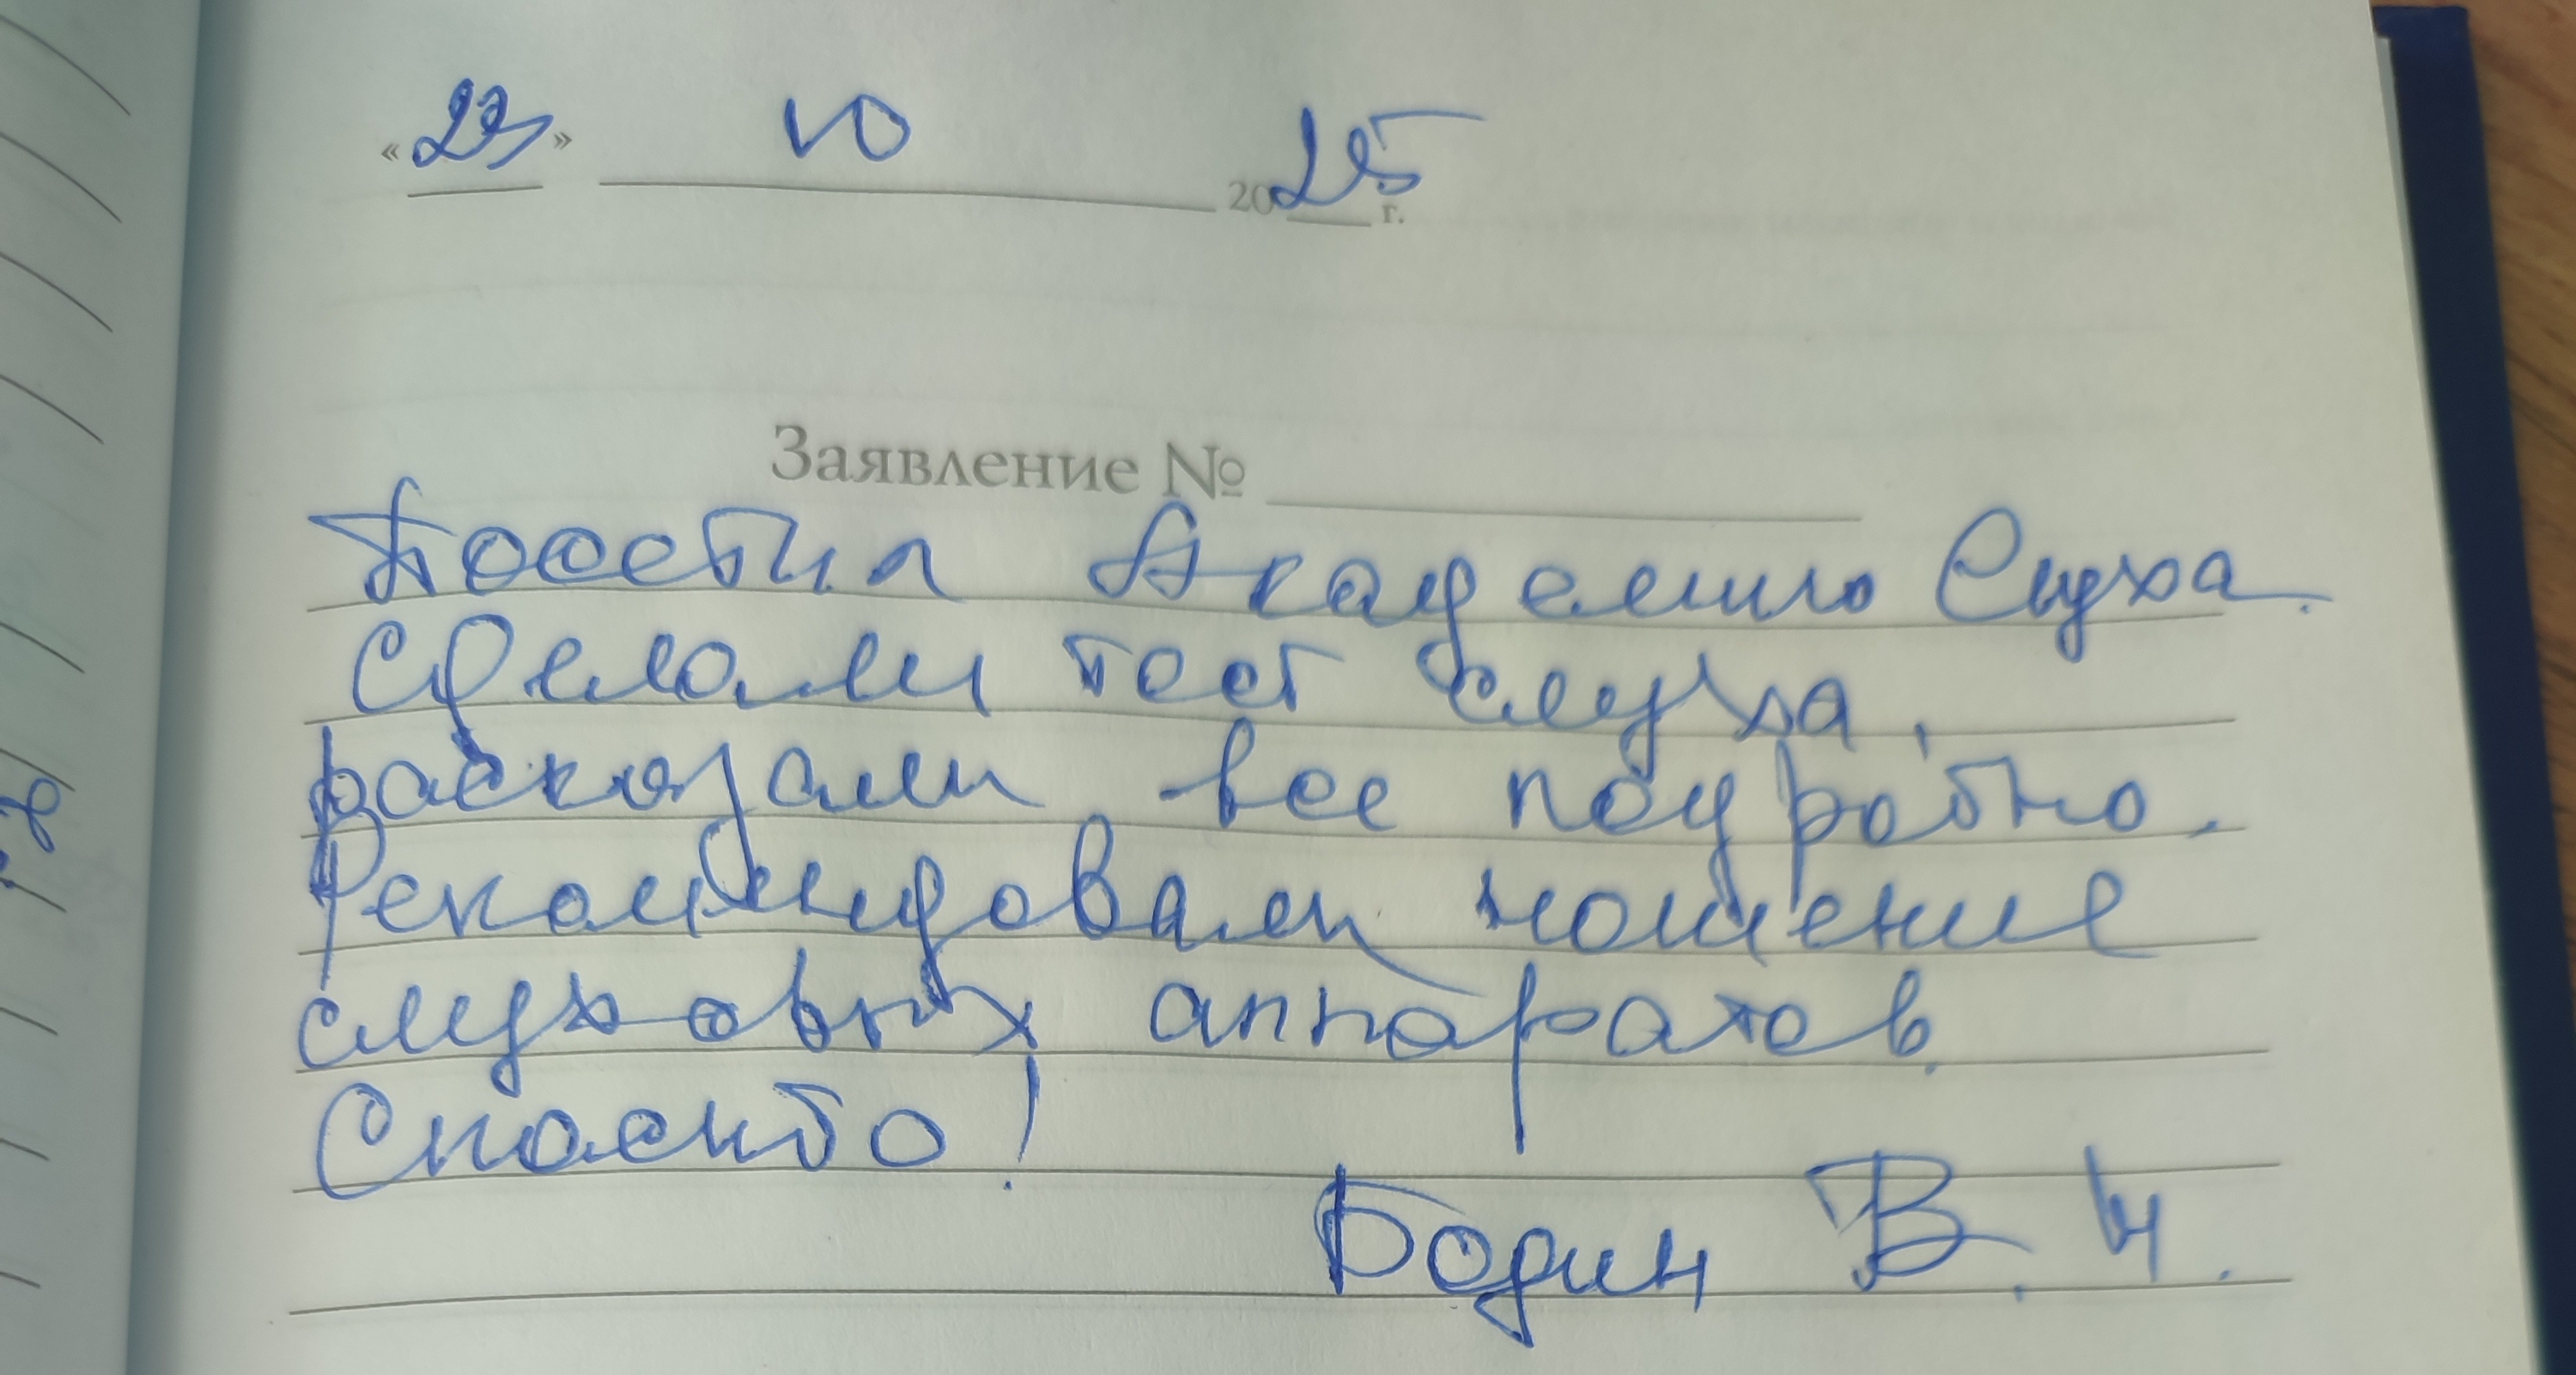 «23» 10 2025 г.
Заявление №
Посетил Академию Слуха.
Сделали тест слуха,
расказали все подробно.
Рекомендовали ношение
слуховых аппаратов.
Спасибо!
Бодин В. И.